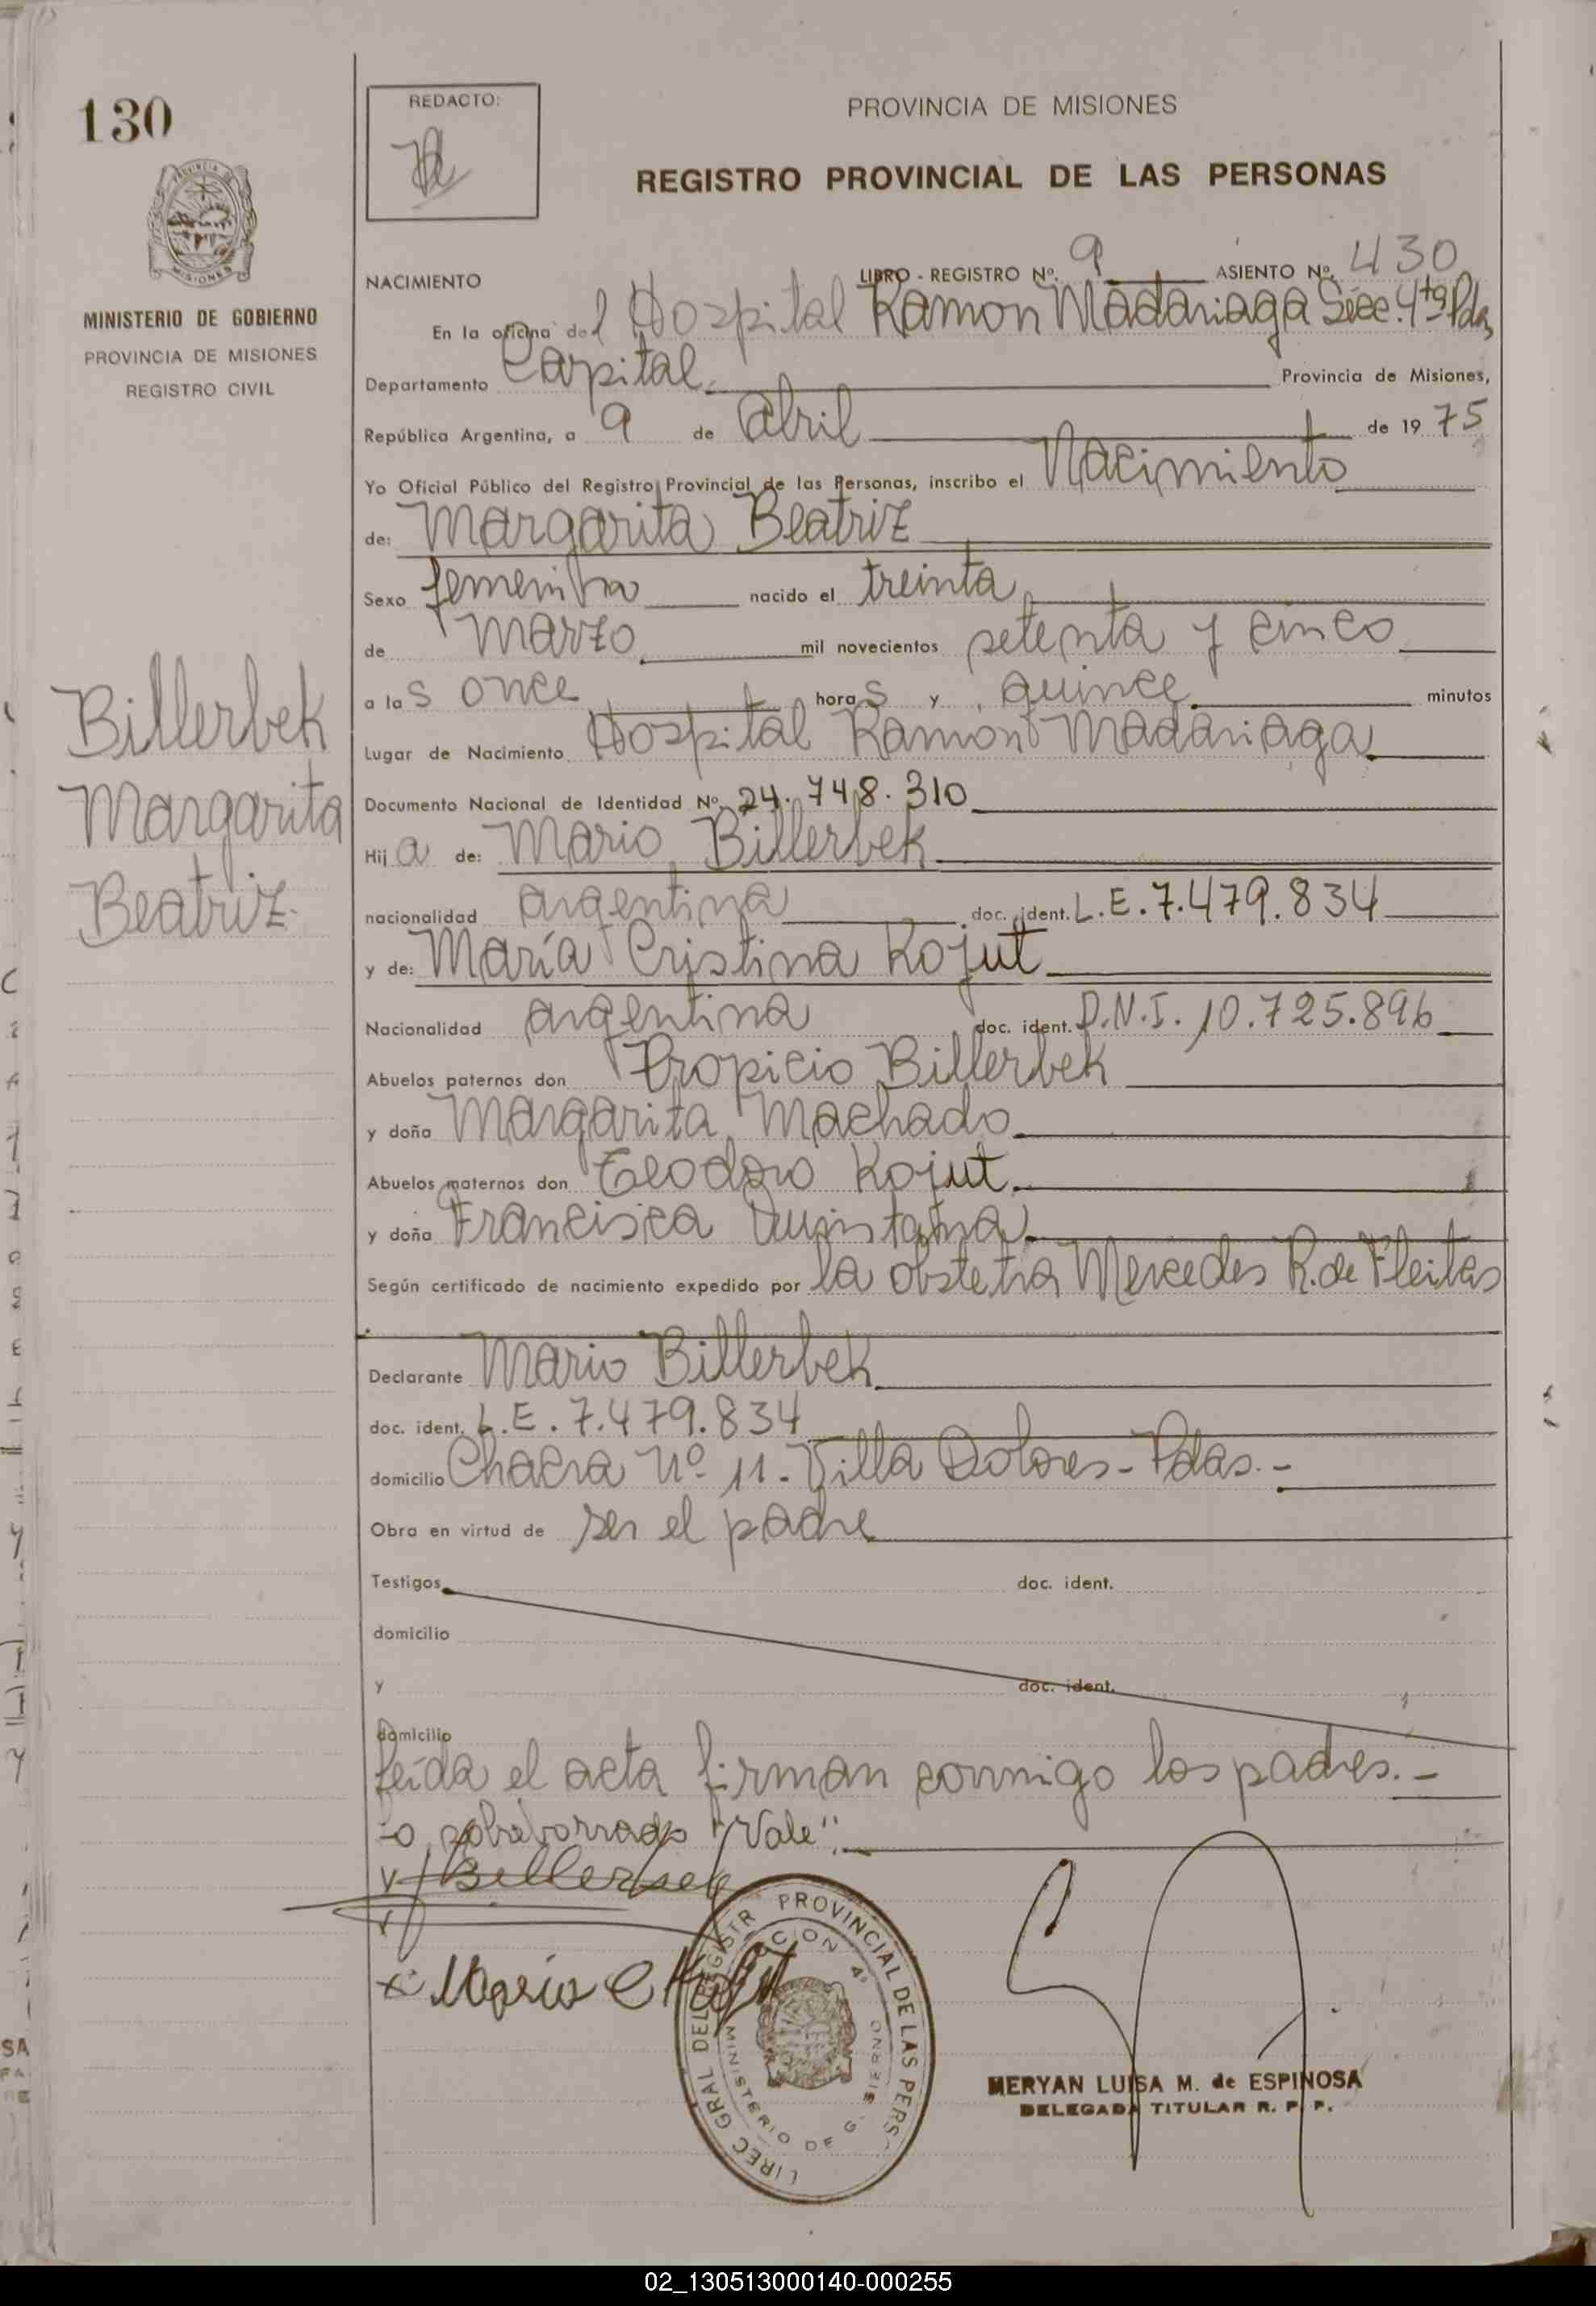 130
REDACTO:
PROVINCIA DE MISIONES
REGISTRO PROVINCIAL DE LAS PERSONAS
MINISTERIO DE GOBIERNO
PROVINCIA DE MISIONES
REGISTRO CIVIL
NACIMIENTO LIBRO - REGISTRO Nº. 9 ASIENTO Nº. 430
En la oficina del Hospital Ramon Madariaga Secc. 4ta Pdas
Departamento Capital. Provincia de Misiones,
República Argentina, a 9 de Abril de 1975
Yo Oficial Público del Registro Provincial de las Personas, inscribo el Nacimiento
de: Margarita Beatriz
Sexo femenino nacido el treinta
de Marzo mil novecientos setenta y cinco
a las once horas y quince minutos
Lugar de Nacimiento Hospital Ramón Madariaga
Billerbek
Margarita
Beatriz.
Documento Nacional de Identidad Nº 24.748.310
Hija de: Mario Billerbek
nacionalidad argentina doc. ident. L.E. 7.479.834
y de: María Cristina Kojut
Nacionalidad argentina doc. ident. D.N.I. 10.725.896
Abuelos paternos don Propicio Billerbek
y doña Margarita Machado
Abuelos maternos don Teodoro Kojut.
y doña Francisca Quintana
Según certificado de nacimiento expedido por la obstetra Mercedes R. de Fleitas
Declarante Mario Billerbek
doc. ident. L.E. 7.479.834
domicilio Chacra Nº 11. Villa Dolores - Pdas. -
Obra en virtud de ser el padre
Testigos doc. ident.
domicilio
y doc. ident.
domicilio
Leída el acta firman conmigo los padres. -
-o sobreborrado "Vale".
Billerbek
x María C Kojut
PROVINCIAL DE LAS PERS
MINISTERIO DE
MERYAN LUISA M. de ESPINOSA
DELEGADA TITULAR R. P. P.
02_130513000140-000255